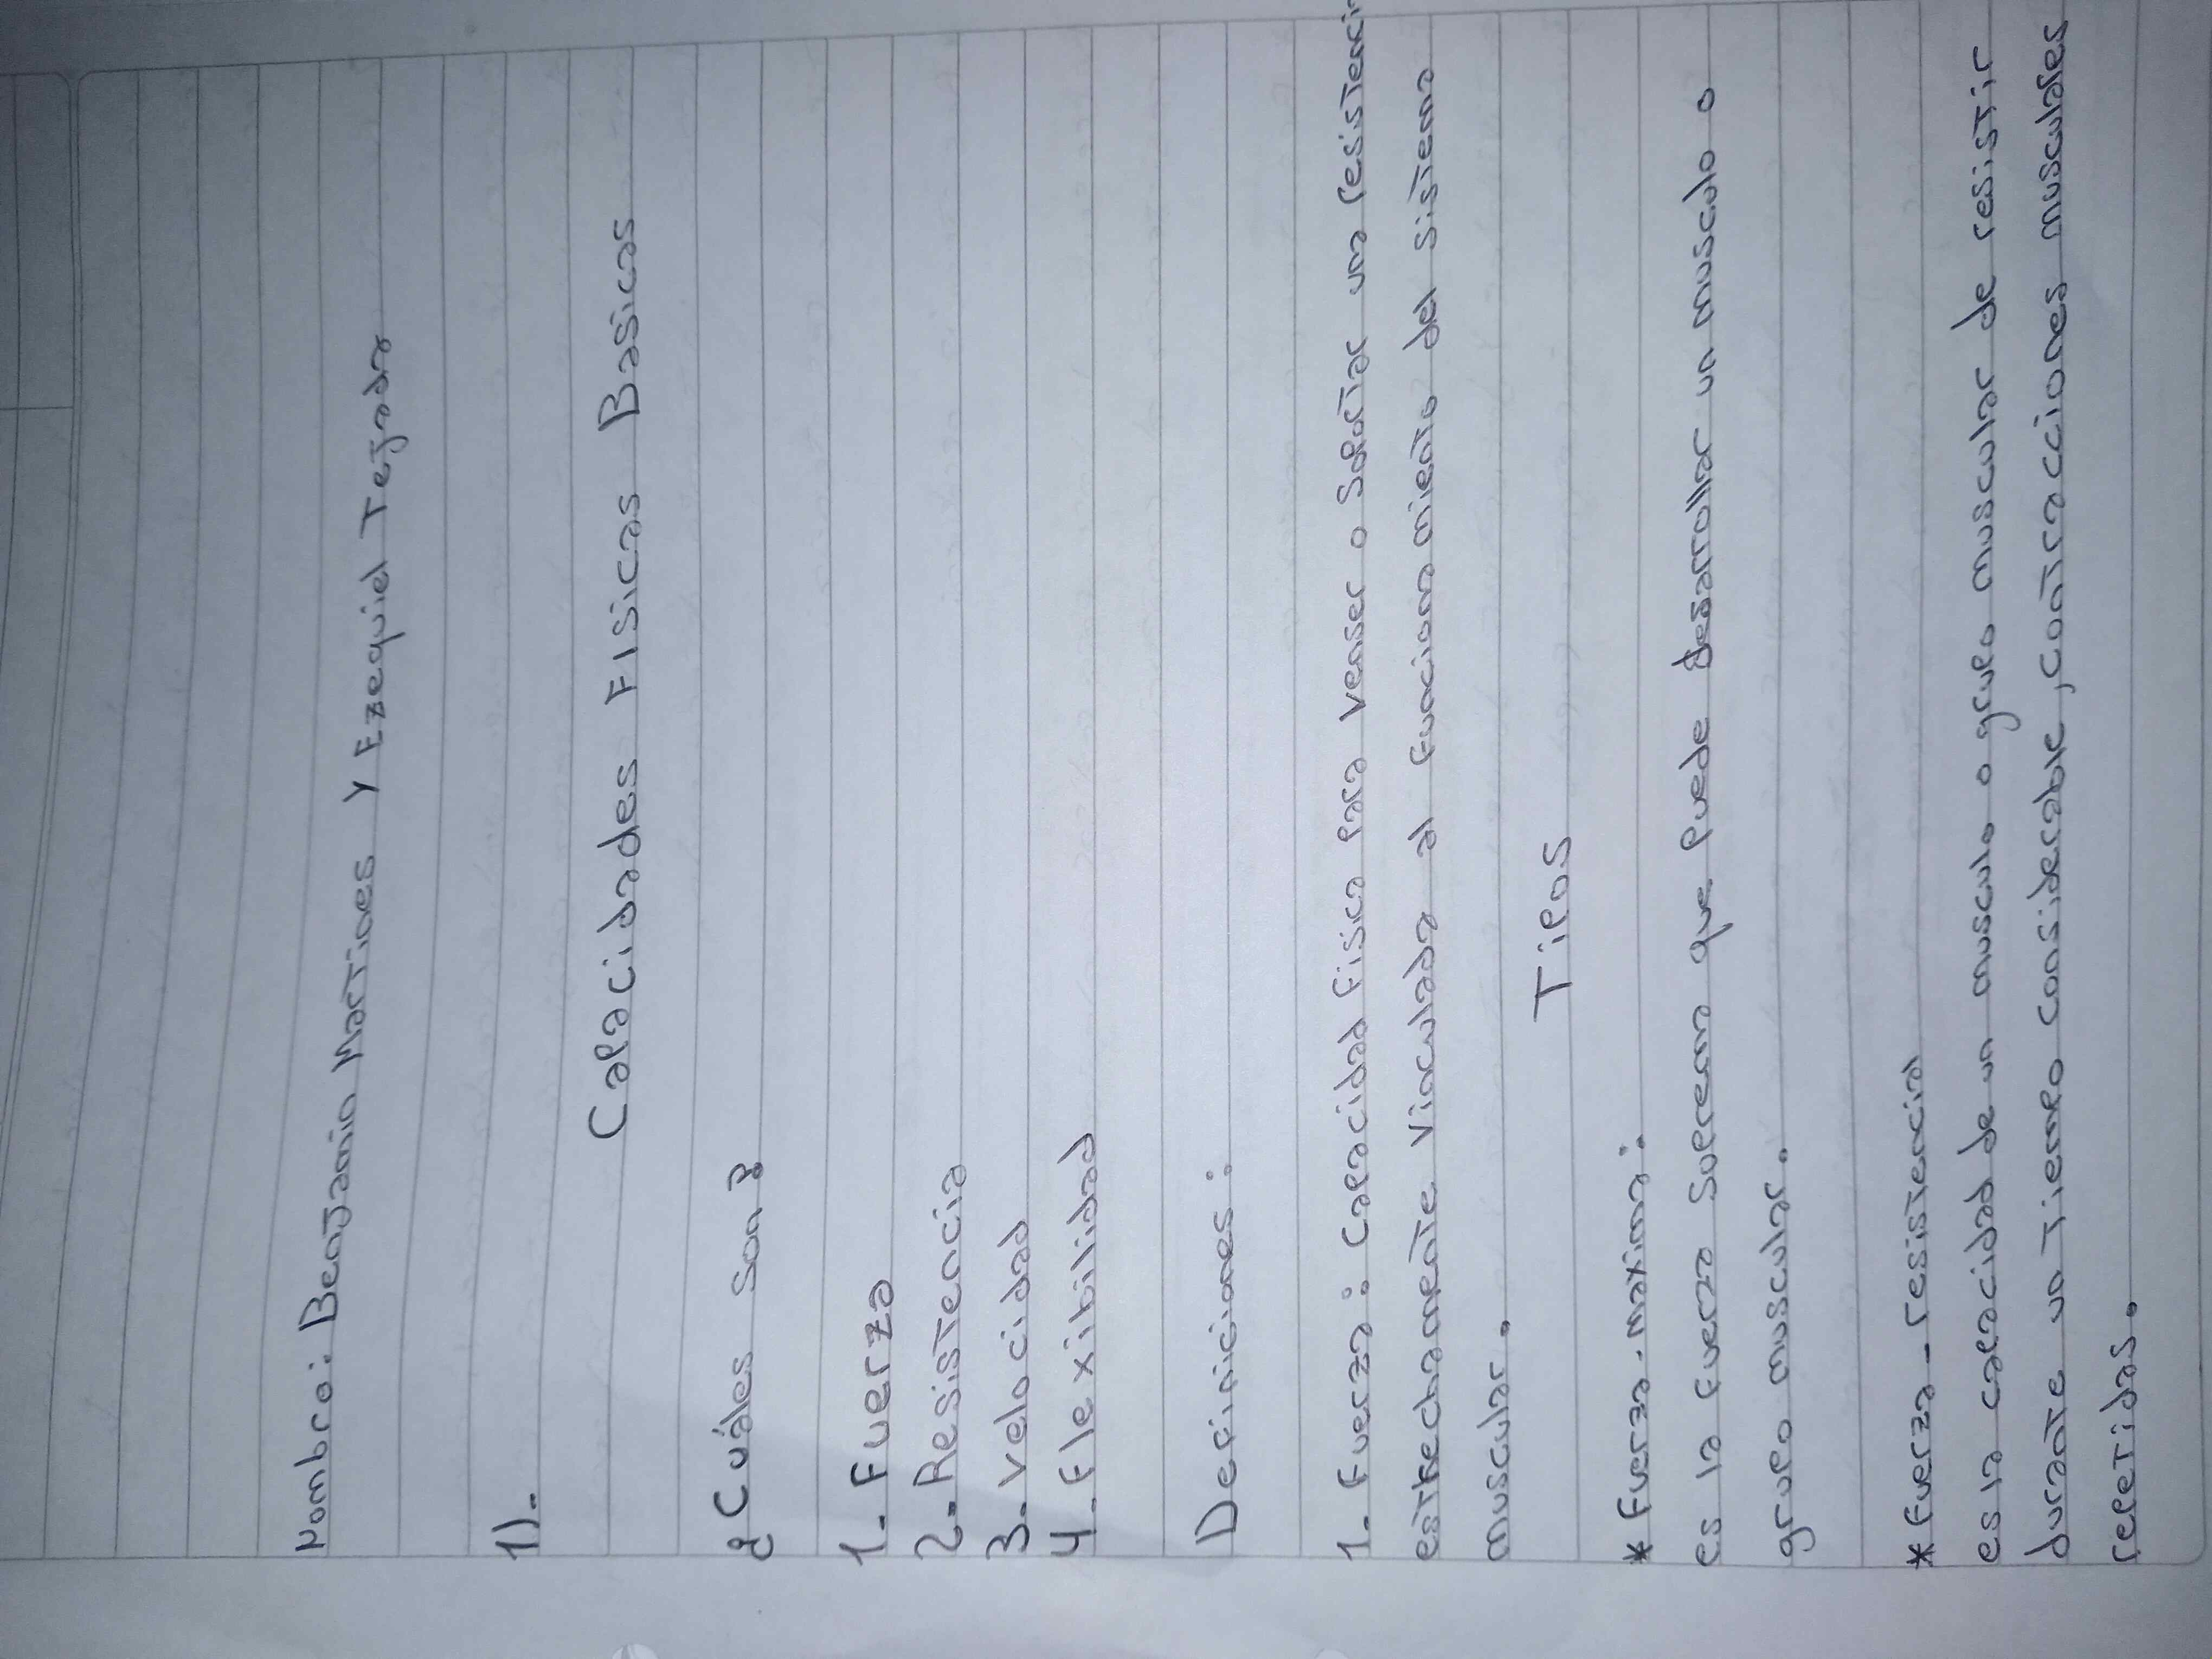 Nombre: Benjamin Martines Y Ezequiel Tejada
1).
Capacidades Fisicas Basicas
¿Cuáles son?
1. Fuerza
2. Resistencia
3. Velocidad
4. Flexibilidad
Definiciones:
1. Fuerza: Capacidad Fisica Para Venser o Soportar una
estrechamente Vinculada al funcionamiento del sistema
muscular.
Tipos
* Fuerza-maxima:
es la fuerza Suprema que Puede desarrollar un musculo o
grupo muscular.
* Fuerza-resistencia
es la capacidad de un musculo o grupo muscular de resistir
durante un Tiempo considerable, Contracciones musculares
repetidas.